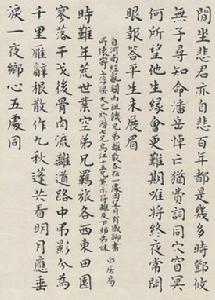 閒坐悲君亦自悲百年都是幾多時鄧攸
無子尋知命潘岳悼亡猶費詞同穴窅冥
何所望他生緣會更難期唯將終夜常開
眼報答平生未展眉
自河南經亂關內阻飢兄弟離散各在一處因望月有感聊書
所懷寄上浮梁大兄於潛七兄烏江十五兄兼示符離及下邽弟妹
白居易
時難年荒世業空弟兄羈旅各西東田園
寥落干戈後骨肉流離道路中弔影分為
千里雁辭根散作九秋蓬共看明月應垂
淚一夜鄉心五處同